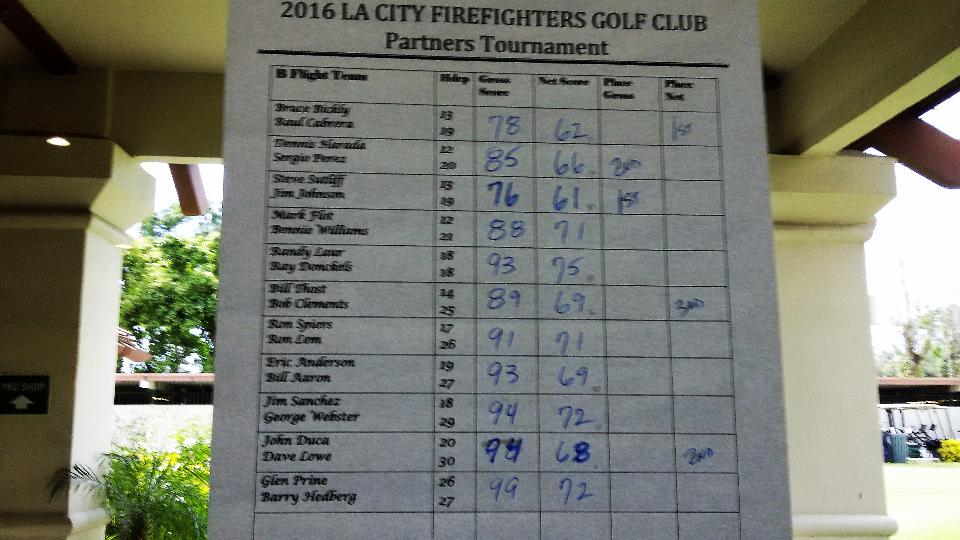 2016 LA CITY FIREFIGHTERS GOLF CLUB
Partners Tournament
B Flight Team Hdcp Gross Score Net Score Place Gross Place Net
Bruce Bickly 13
Raul Cabrera 19 78 62 1st
Dennis Harada 12
Sergio Perez 20 85 66 2ND
Steve Sutliff 13
Jim Johnson 19 76 61 1st
Mark Flit 12
Bennie Williams 21 88 71
Randy Laur 18
Ray 18 93 75
Bill Thost 14
Bob Clements 25 89 69 3RD
Ron Spiers 17
Ron Lem 26 91 71
Eric Anderson 19
Bill Aaron 27 93 69
Jim Sanchez 18
George Webster 29 94 72
John Duca 20
Dave Lowe 30 94 68 2ND
Glen Prine 26
Barry Hedberg 27 99 72
PRO SHOP